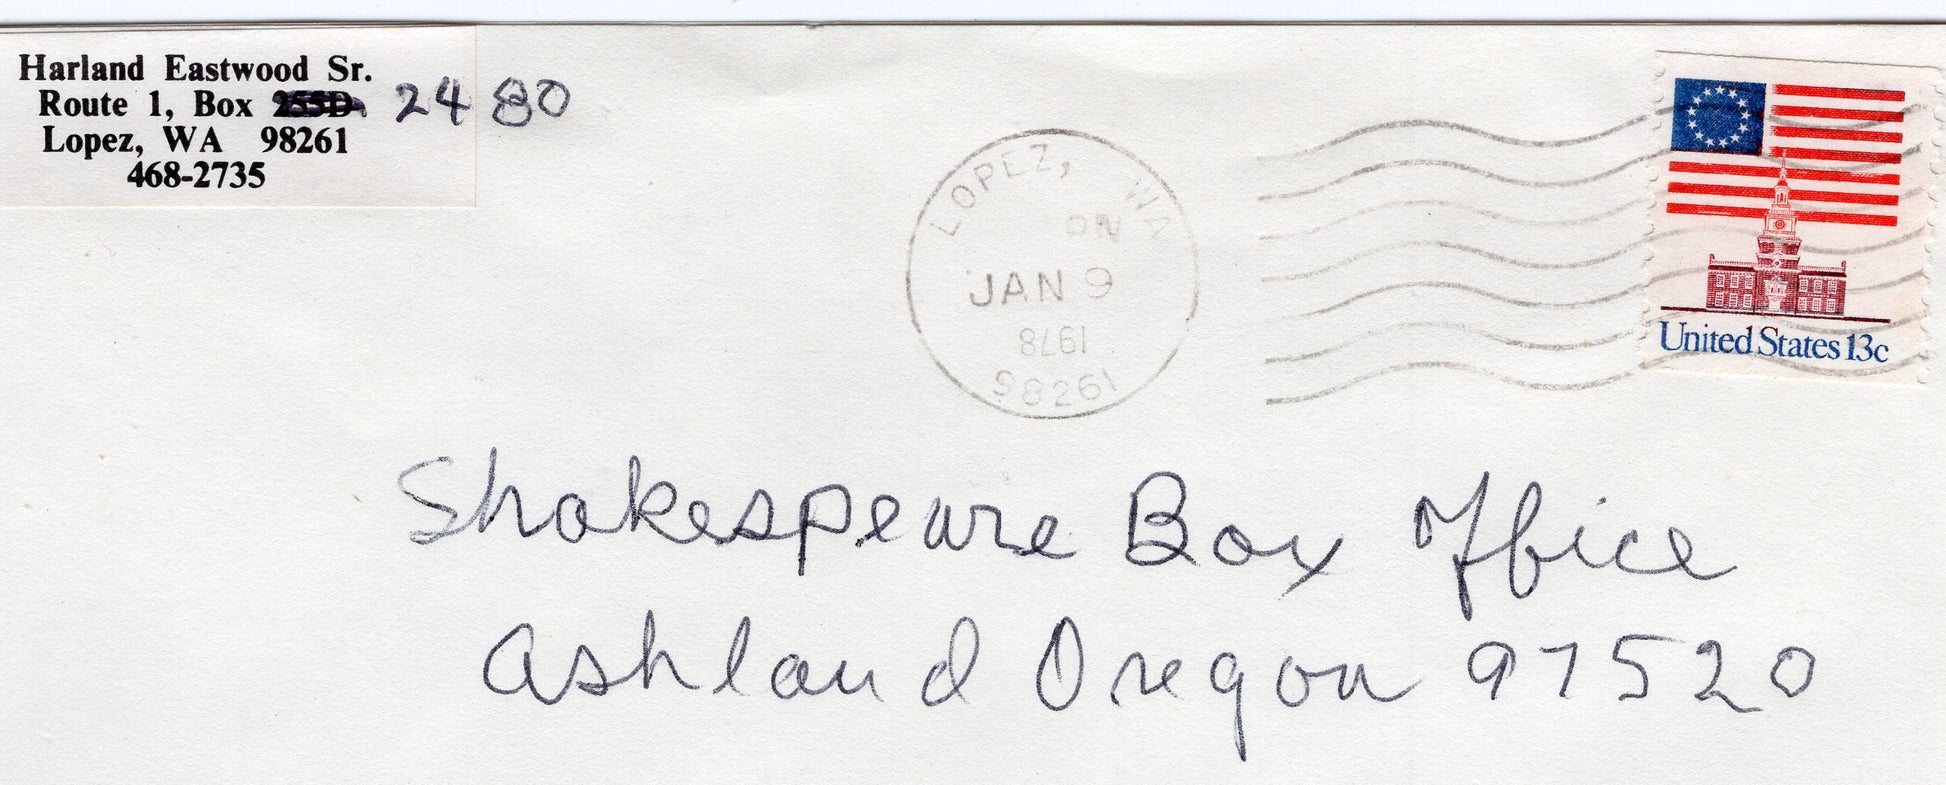 Harland Eastwood Sr.
Route 1, Box 255D 2480
Lopez, WA 98261
468-2735
LOPEZ, WA
JAN 9
1978
98261
United States 13c
Shakespeare Box Office
Ashland Oregon 97520